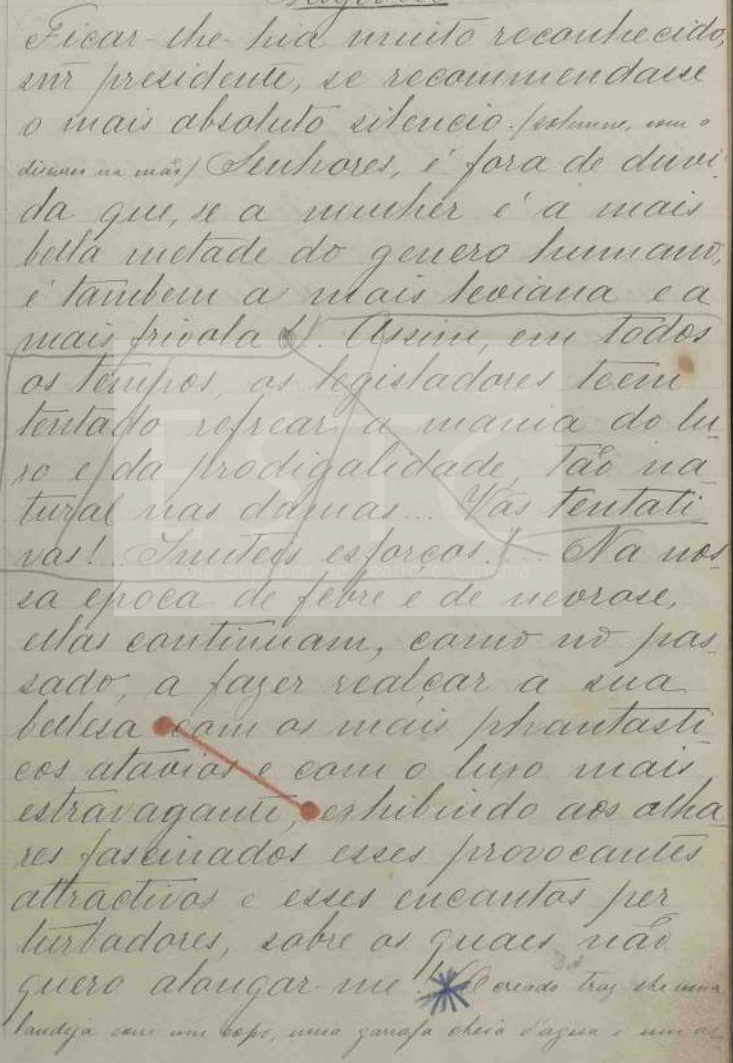 Ficar-lhe-hia muito reconhecido,
snr presidente, se recommendasse
o mais absoluto silencio. (solemne, com o
discurso na mão) Senhores, é fora de duvi
da que, se a mulher é a mais
bella metade do genero humano,
é tambem a mais leviana e a
mais frivola!. Assim, em todos
os tempos, os legisladores teem
tentado refrear a mania do lu
xo e da prodigalidade, tão na
tural nas damas... Vãs tentati
vas!.. Inuteis esforços!.. Na nos
sa epoca de febre e de nevrose,
ellas continuam, como no pas
sado, a fazer realçar a sua
bellesa com os mais phantasti
cos atavios e com o luxo mais
estravagante, exhibindo aos olha
res fascinados esses provocantes
attractivos e esses encantos per
turbadores, sobre os quaes não
quero alongar-me! (O creado traz-lhe uma
bandeja com um copo, uma garrafa cheia d'agua e um as
ESTC
Escola Superior de Teatro e Cinema